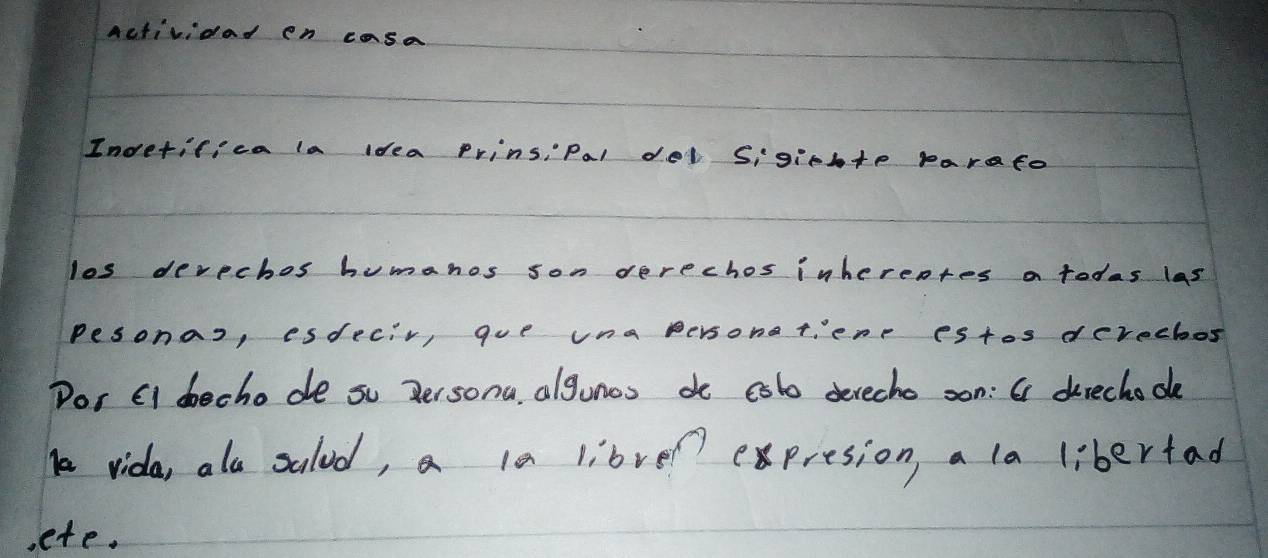 Actividad en casa
Indetifica la idea prinsipal del sigiente parafo
los derechos humanos son derechos inherentes a todas las
pesonas, esdecir, que una persona tiene estos derechos
Por El hecho de su Persona. algunos de esto derecho son: El derecho de
la vida, ala salud, a la libre expresion, a la libertad
.etc.